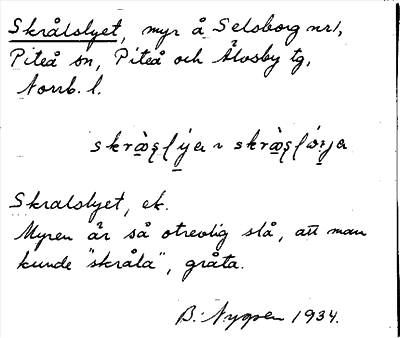 Skrålslyet, myr å Selsborg nr 1,
Piteå sn, Piteå och Älvsby tg,
Norrb. l.
Skralslyet, ek.
Myren är så otrevlig slå, att man
kunde "skråla", gråta.
B. Nygren 1934.